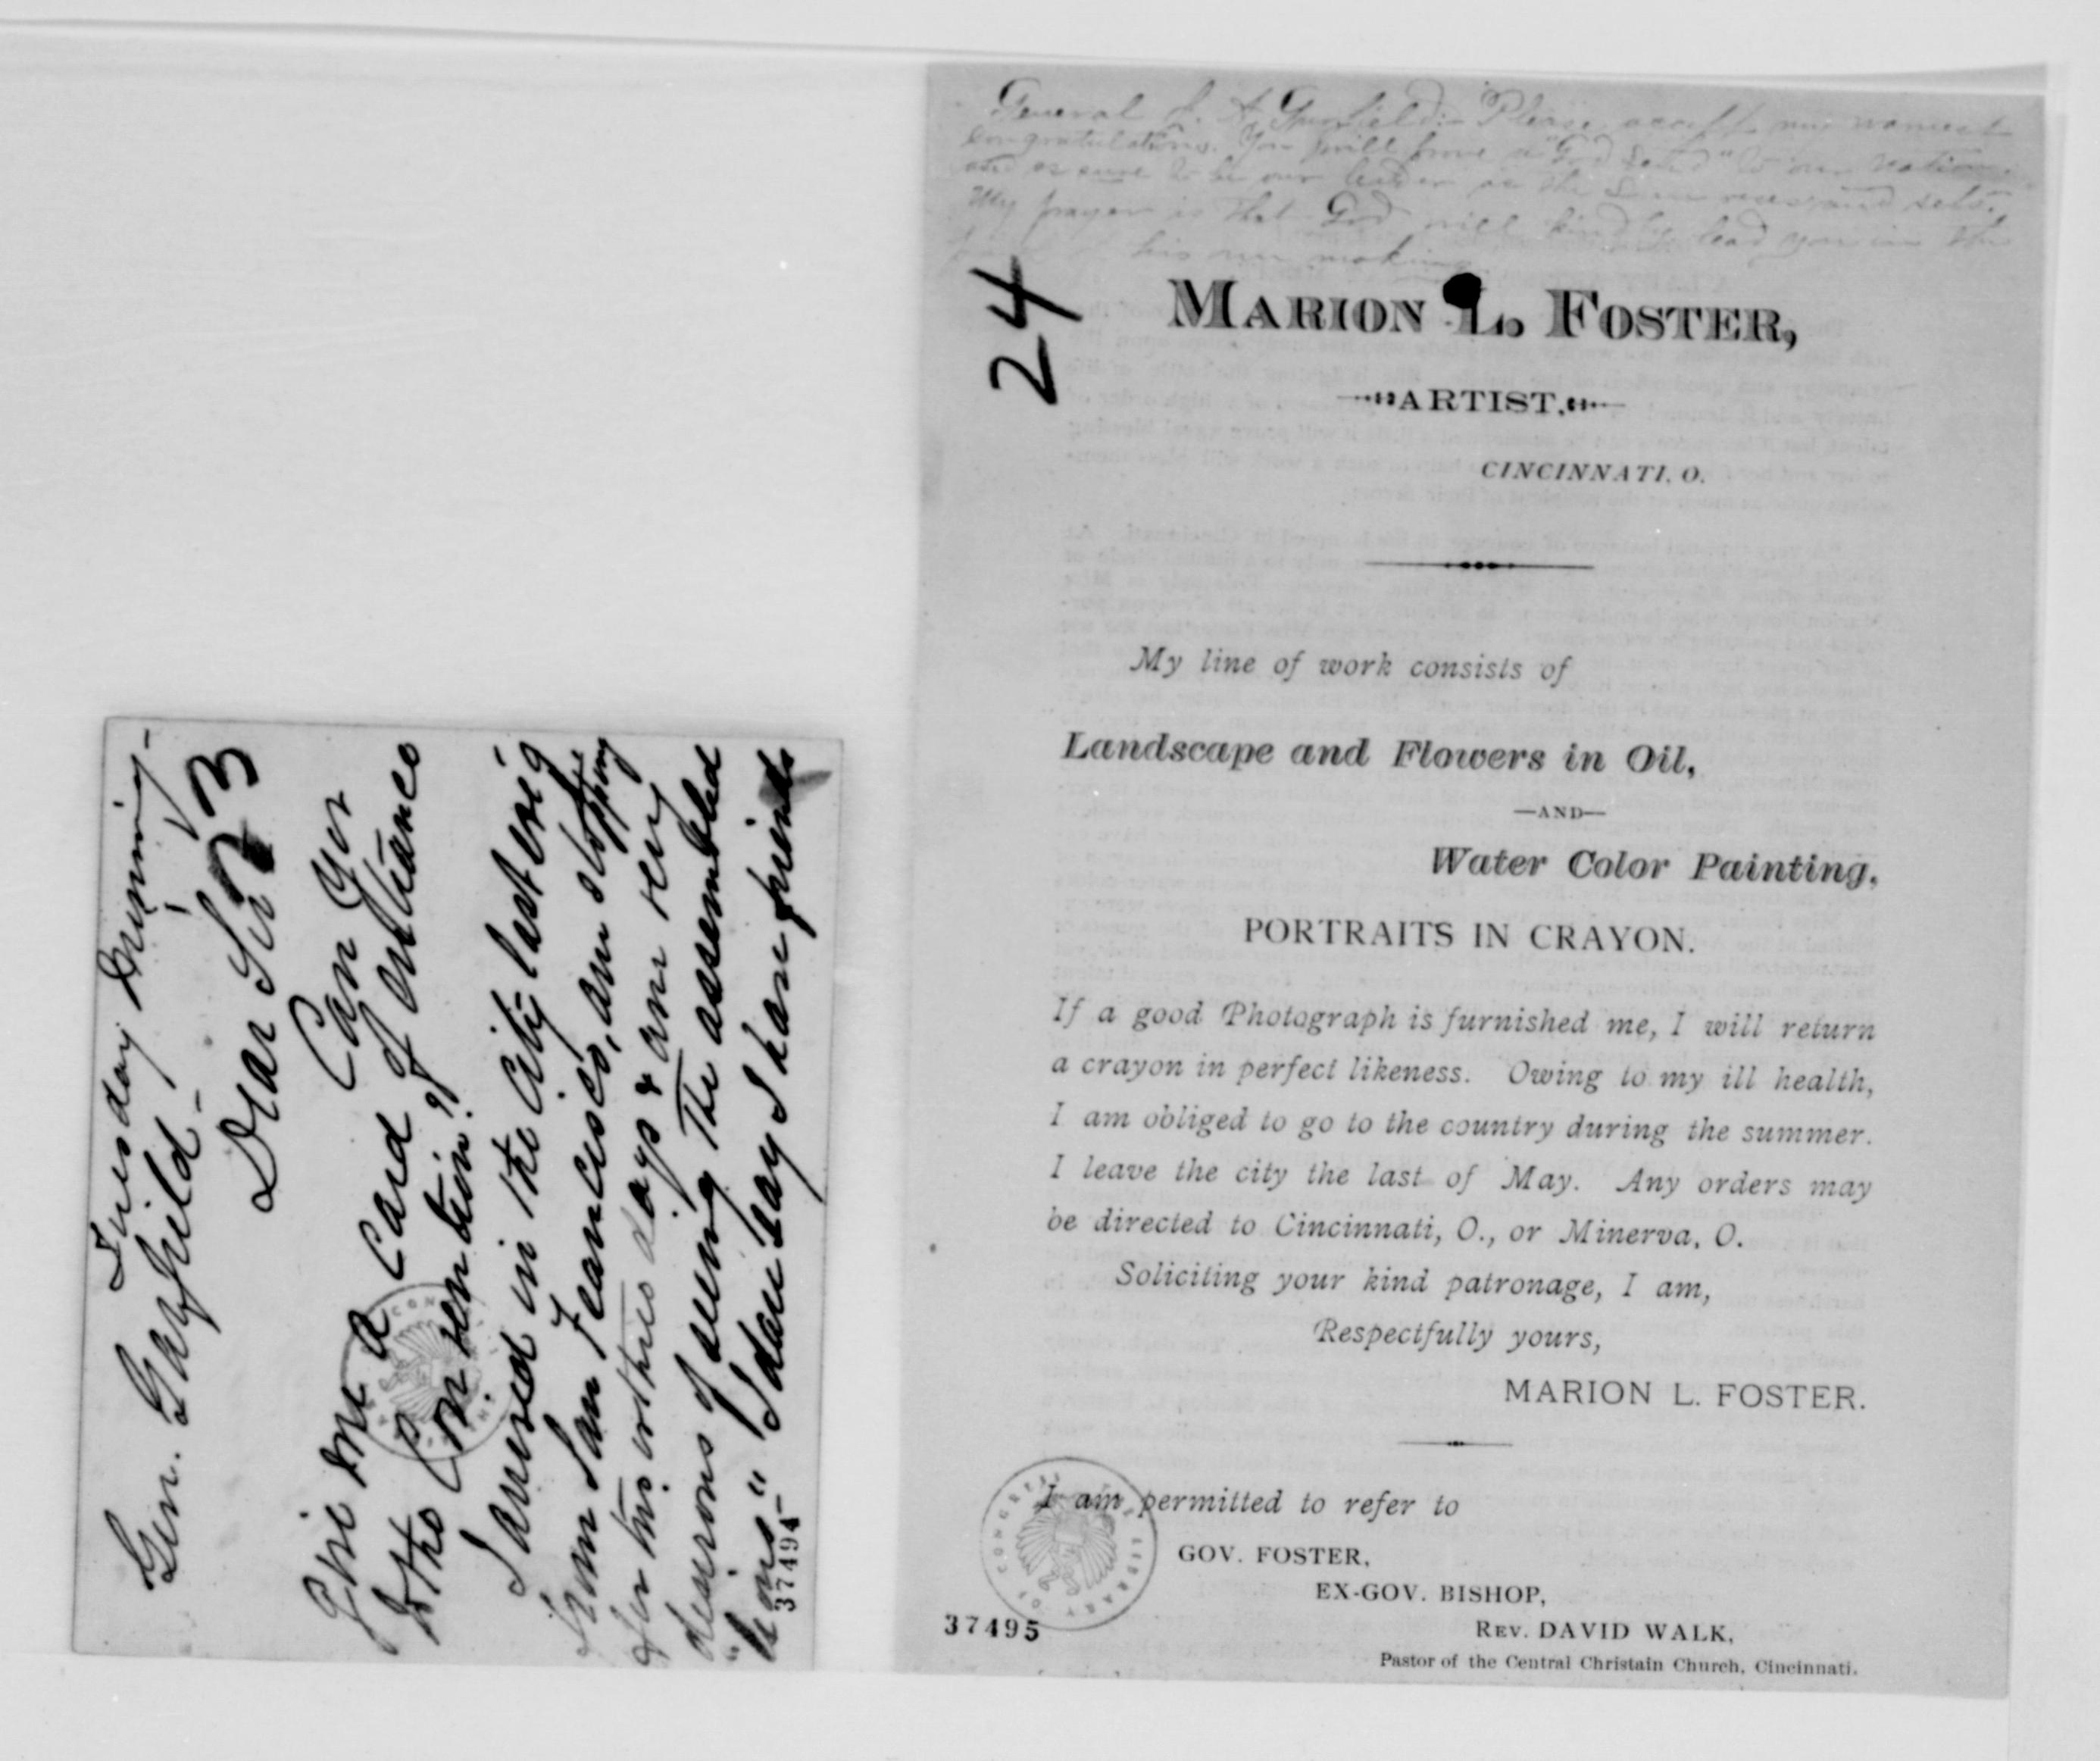 Tuesday Morning -
Gen. Garfield -
Dear Sir
23
Can you
give me a Card of entrance
to the Convention?
I arrived in the City last eve'g
from San Francisco, am stopping
for two or three days & am very
desirous of seeing the assembled
"Lions" I dare say I have friends
37494
General J. A. Garfield:- Please accept my warmest
Congratulations. You will prove a "God send" to our nation.
as sure to be our leader as the Sun rises and sets.
My prayer is that God will kindly lead you in the
his own making
24
MARION L. FOSTER,
ARTIST.
CINCINNATI, O.
My line of work consists of
Landscape and Flowers in Oil,
—AND—
Water Color Painting.
PORTRAITS IN CRAYON.
If a good Photograph is furnished me, I will return
a crayon in perfect likeness. Owing to my ill health,
I am obliged to go to the country during the summer.
I leave the city the last of May. Any orders may
be directed to Cincinnati, O., or Minerva, O.
Soliciting your kind patronage, I am,
Respectfully yours,
MARION L. FOSTER.
I am permitted to refer to
GOV. FOSTER,
EX-GOV. BISHOP,
REV. DAVID WALK,
Pastor of the Central Christain Church, Cincinnati.
LIBRARY OF CONGRESS
37495